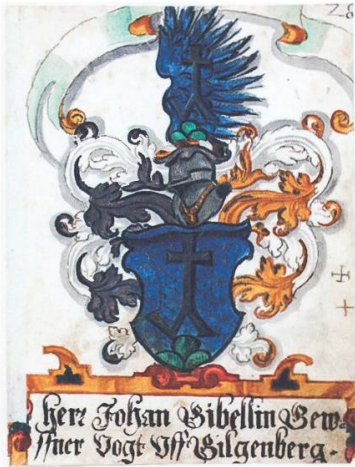 28
Herr Johan Gibellin Gew=
ſſner Vogt Vff Gilgenberg.